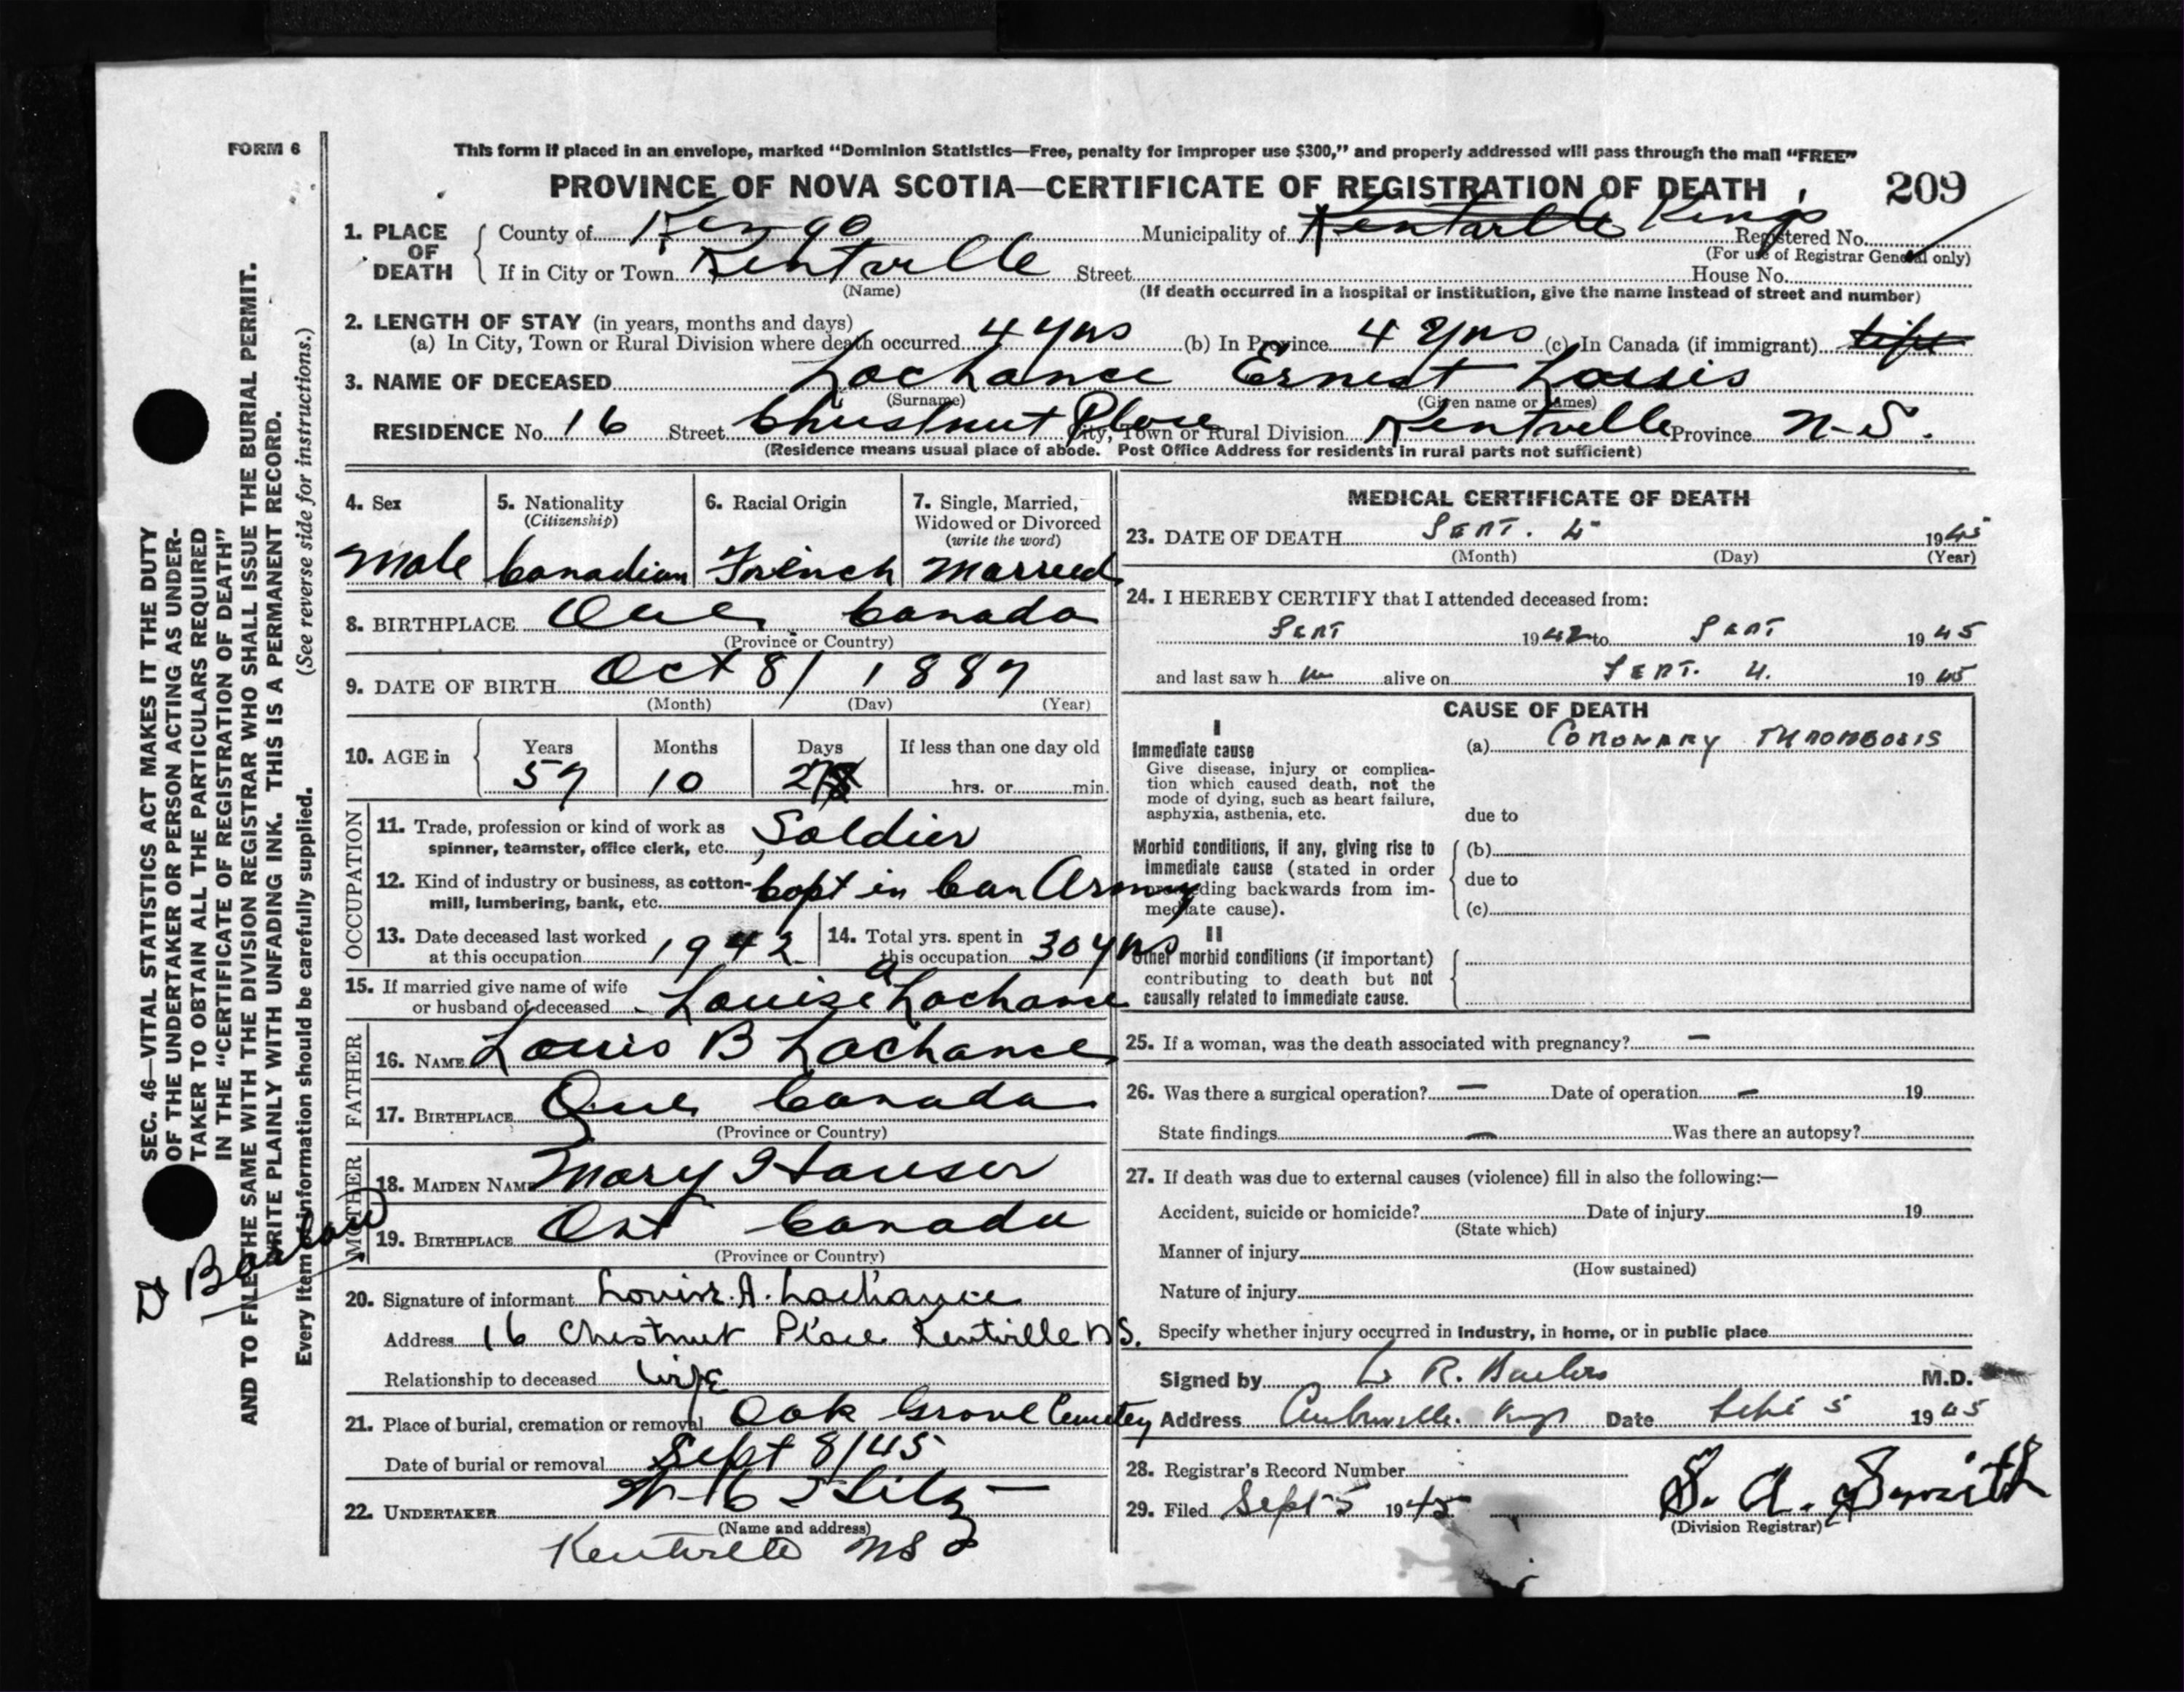 FORM 6
This form if placed in an envelope, marked “Dominion Statistics—Free, penalty for improper use $300,” and properly addressed will pass through the mail “FREE”
PROVINCE OF NOVA SCOTIA—CERTIFICATE OF REGISTRATION OF DEATH 209
1. PLACE OF DEATH
County of Kings Municipality of Kentville Kings
Registered No.
(For use of Registrar General only)
If in City or Town Kentville Street House No.
(Name) (If death occurred in a hospital or institution, give the name instead of street and number)
2. LENGTH OF STAY (in years, months and days)
(a) In City, Town or Rural Division where death occurred 4 yrs (b) In Province 4 yrs (c) In Canada (if immigrant) life
3. NAME OF DECEASED Lachance Ernest Louis
(Surname) (Given name or names)
RESIDENCE No. 16 Street Chustnut Place City, Town or Rural Division Kentville Province N.S.
(Residence means usual place of abode. Post Office Address for residents in rural parts not sufficient)
4. Sex
Male
5. Nationality
(Citizenship)
Canadian
6. Racial Origin
French
7. Single, Married,
Widowed or Divorced
(write the word)
Married
8. BIRTHPLACE Que Canada
(Province or Country)
9. DATE OF BIRTH Oct 8/ 1887
(Month) (Day) (Year)
10. AGE in
Years Months Days If less than one day old
57 10 27 hrs. or min.
OCCUPATION
11. Trade, profession or kind of work as
spinner, teamster, office clerk, etc. Soldier
12. Kind of industry or business, as cotton-
mill, lumbering, bank, etc. Capt in Can Army
13. Date deceased last worked
at this occupation 1942
14. Total yrs. spent in
this occupation 30 yrs
15. If married give name of wife
or husband of deceased Louise A Lachance
FATHER
16. NAME Louis B Lachance
17. BIRTHPLACE Que Canada
(Province or Country)
MOTHER
18. MAIDEN NAME Mary Hauser
19. BIRTHPLACE Ont Canada
(Province or Country)
20. Signature of informant Louise A. Lachance
Address 16 Chestnut Place Kentville N.S.
Relationship to deceased Wife
21. Place of burial, cremation or removal Oak Grove Cemetey
Date of burial or removal Sept 8/45
22. UNDERTAKER
(Name and address)
Kentville NS
MEDICAL CERTIFICATE OF DEATH
23. DATE OF DEATH SEPT. 4 1945
(Month) (Day) (Year)
24. I HEREBY CERTIFY that I attended deceased from:
SEPT 1942 to SEPT 1945
and last saw h im alive on SEPT. 4. 1945
CAUSE OF DEATH
I
Immediate cause
Give disease, injury or complica-
tion which caused death, not the
mode of dying, such as heart failure,
asphyxia, asthenia, etc.
(a) CORONARY THROMBOSIS
due to
Morbid conditions, if any, giving rise to
immediate cause (stated in order
proceeding backwards from im-
mediate cause).
(b)
due to
(c)
II
Other morbid conditions (if important)
contributing to death but not
causally related to immediate cause.
25. If a woman, was the death associated with pregnancy? —
26. Was there a surgical operation? — Date of operation — 19
State findings — Was there an autopsy?
27. If death was due to external causes (violence) fill in also the following:—
Accident, suicide or homicide? Date of injury 19
(State which)
Manner of injury
(How sustained)
Nature of injury
Specify whether injury occurred in industry, in home, or in public place
Signed by R. M.D.
Address Date Sept 5 1945
28. Registrar's Record Number
29. Filed Sept 5 1945 S. A. Smith
(Division Registrar)
SEC. 46—VITAL STATISTICS ACT MAKES IT THE DUTY
OF THE UNDERTAKER OR PERSON ACTING AS UNDER-
TAKER TO OBTAIN ALL THE PARTICULARS REQUIRED
IN THE “CERTIFICATE OF REGISTRATION OF DEATH”
AND TO FILE THE SAME WITH THE DIVISION REGISTRAR WHO SHALL ISSUE THE BURIAL PERMIT.
WRITE PLAINLY WITH UNFADING INK. THIS IS A PERMANENT RECORD.
Every item of information should be carefully supplied. (See reverse side for instructions.)
Dr